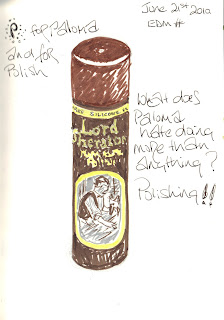 June 21st 2010
EDM #
"P" for Paloma
and for
Polish
SILICONE
Lord
Sheraton
What does
Paloma
hate doing
more than
anything?
Polishing!!